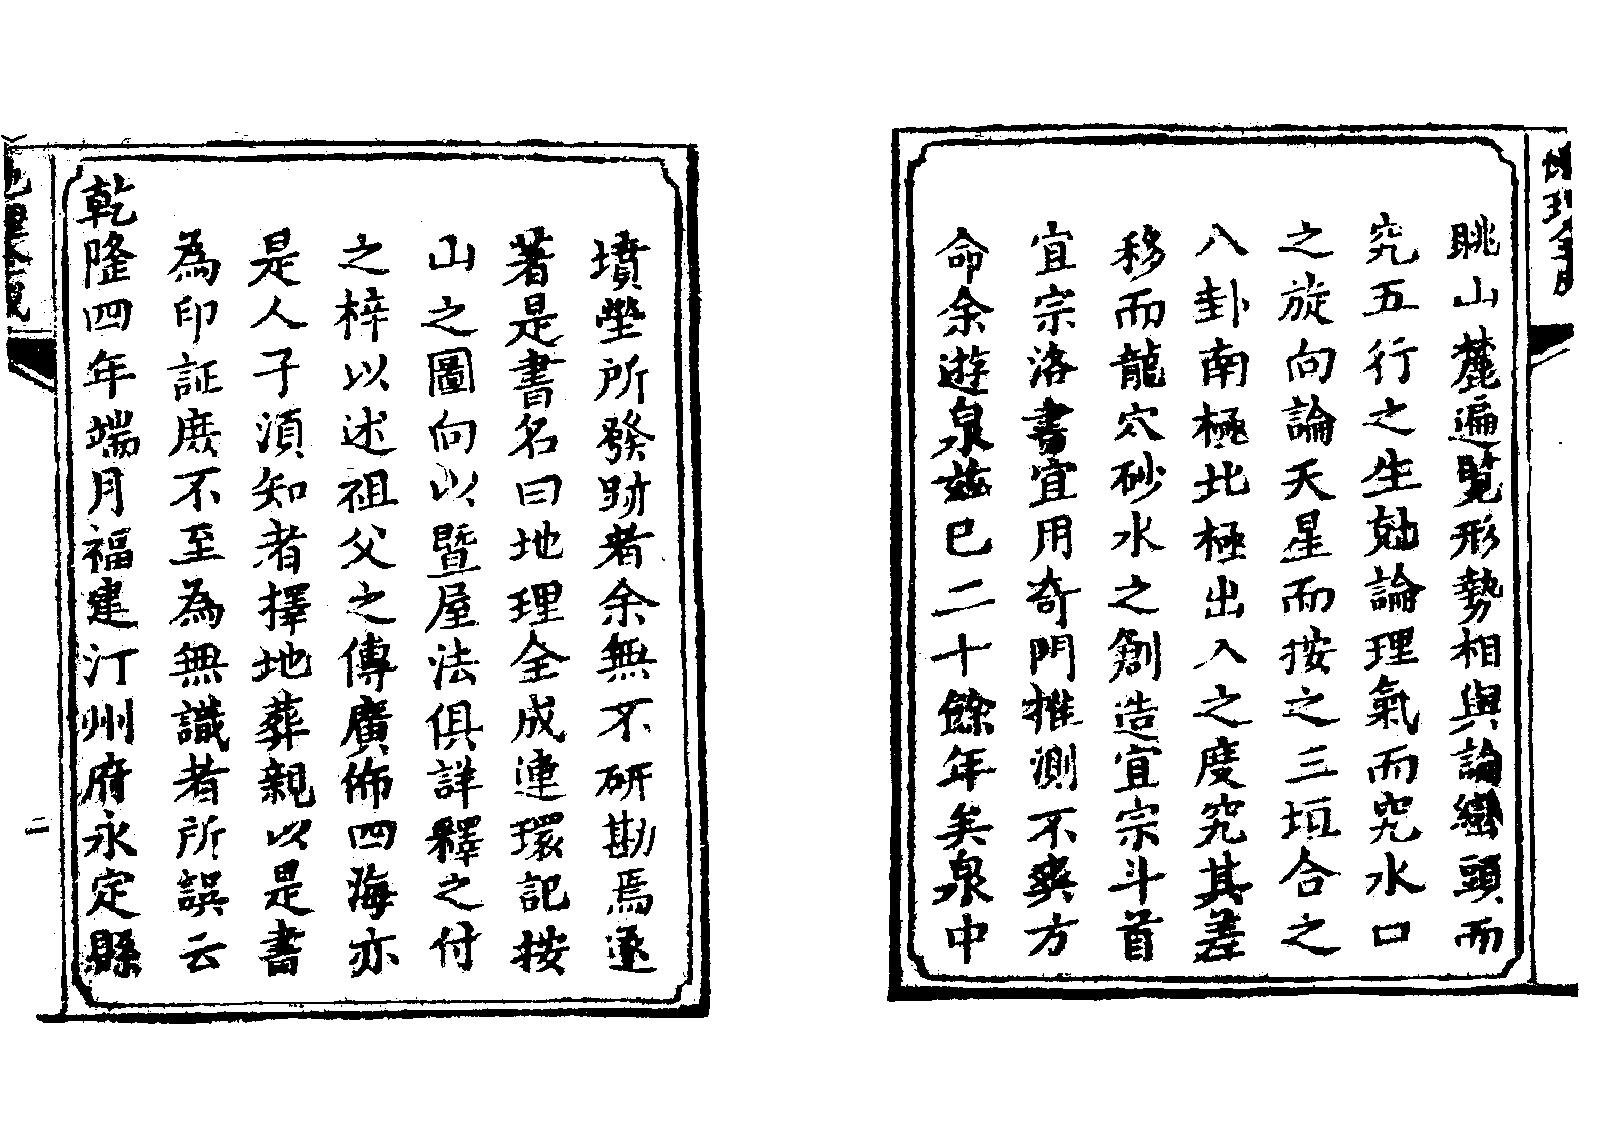 眺山麓遍覧形勢相與論巒頭而
究五行之生尅論理氣而究水口
之旋向論天星而按之三垣合之
八卦南極北極出入之度究其差
移而龍穴砂水之創造宜宗斗首
宜宗洛書宜用奇門推測不爽方
命余遊泉茲已二十餘年矣泉中
墳塋所發跡者余無不研勘焉逐
著是書名曰地理全成連環記按
山之圖向以暨屋法俱詳釋之付
之梓以述祖父之傳廣佈四海亦
是人子須知者擇地葬親以是書
為印証庻不至為無識者所誤云
乾隆四年端月福建汀州府永定縣
二